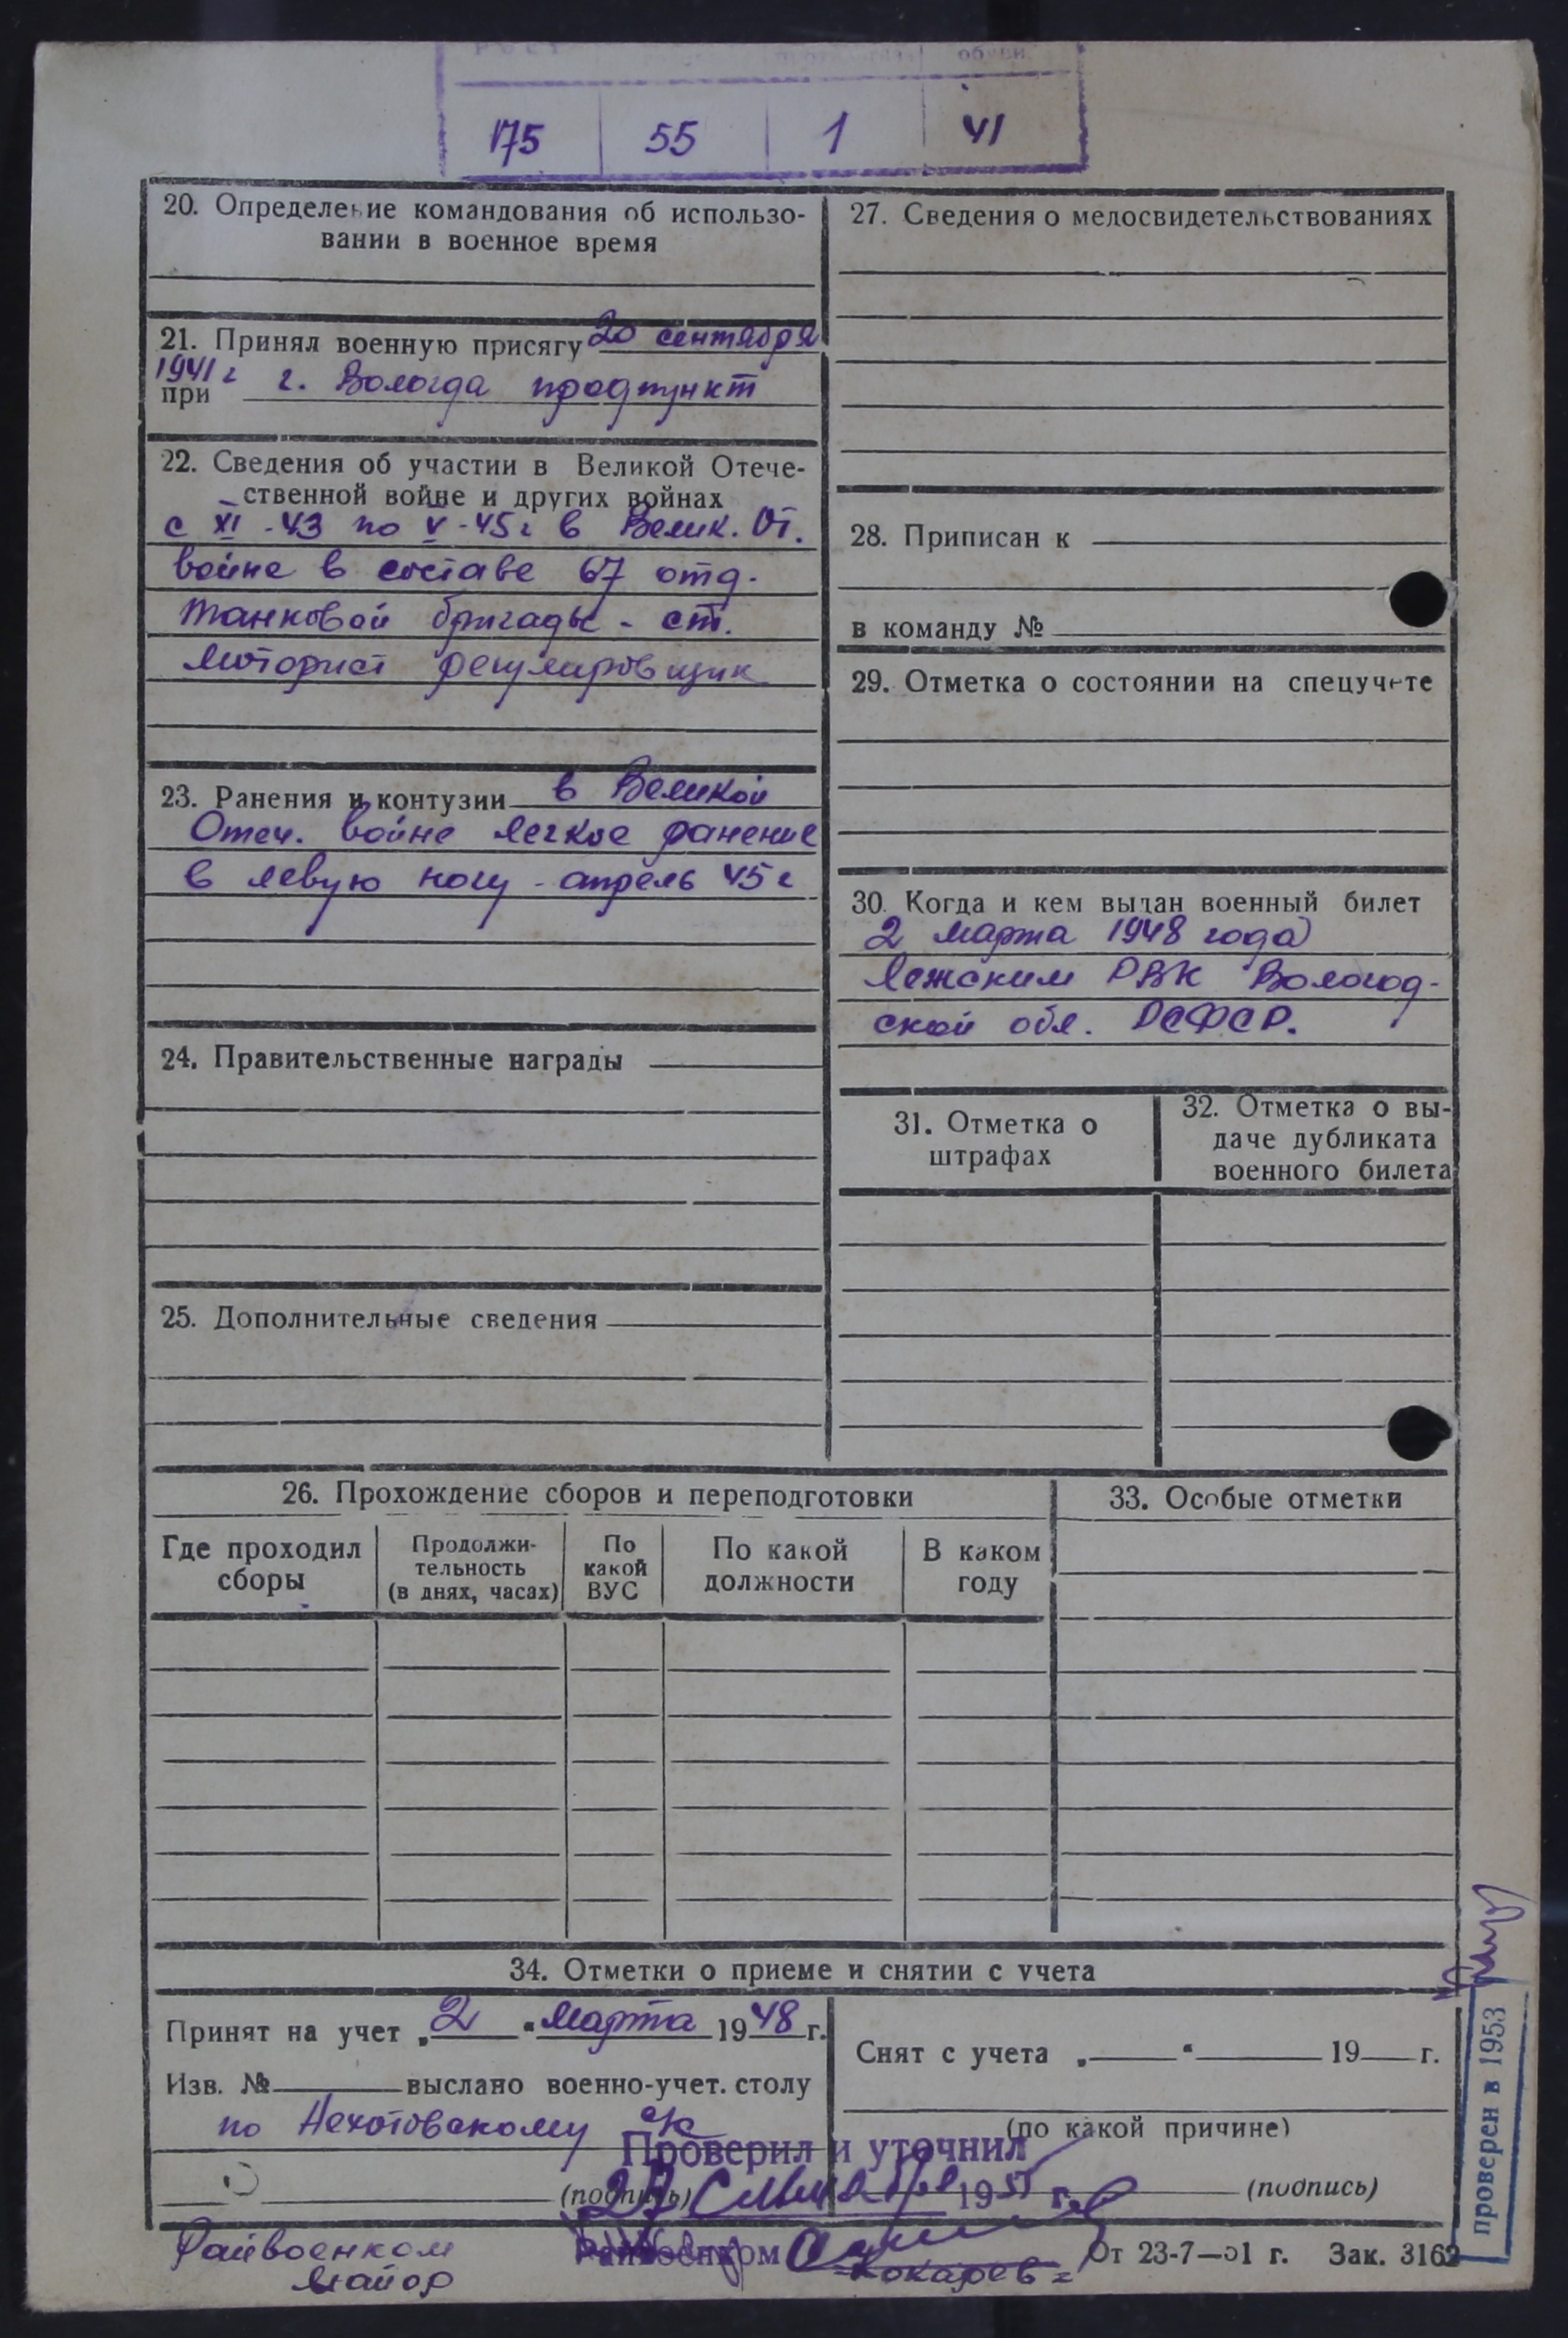 РОСТ обуви
175 55 1 41
20. Определение командования об использо-
вании в военное время
21. Принял военную присягу 20 сентября
1941 г
при г. Вологда продпункт
22. Сведения об участии в Великой Отече-
ственной войне и других войнах
с XI -43 по V -45 г в Велик. От.
войне в составе 67 отд.
танковой бригады - ст.
моторист регулировщик
23. Ранения и контузии в Великой
Отеч. войне легкое ранение
в левую ногу - апрель 45 г
24. Правительственные награды
25. Дополнительные сведения
27. Сведения о медосвидетельствованиях
28. Приписан к
в команду №
29. Отметка о состоянии на спецучете
30. Когда и кем выдан военный билет
2 марта 1948 года
Лежским РВК Вологод-
ской обл. РСФСР.
31. Отметка о
штрафах
32. Отметка о вы-
даче дубликата
военного билета
26. Прохождение сборов и переподготовки
Где проходил
сборы
Продолжи-
тельность
(в днях, часах)
По
какой
ВУС
По какой
должности
В каком
году
33. Особые отметки
34. Отметки о приеме и снятии с учета
Принят на учет „ 2 “ марта 19 48 г.
Изв. № выслано военно-учет. столу
по Нехотовскому с/с
(подпись)
Снят с учета „ “ 19 г.
(по какой причине)
(подпись)
Проверил и уточнил
27 19 г.
Райвоенком
Райвоенком
майор
Кокарев
От 23-7—51 г. Зак. 3162
проверен в 1953